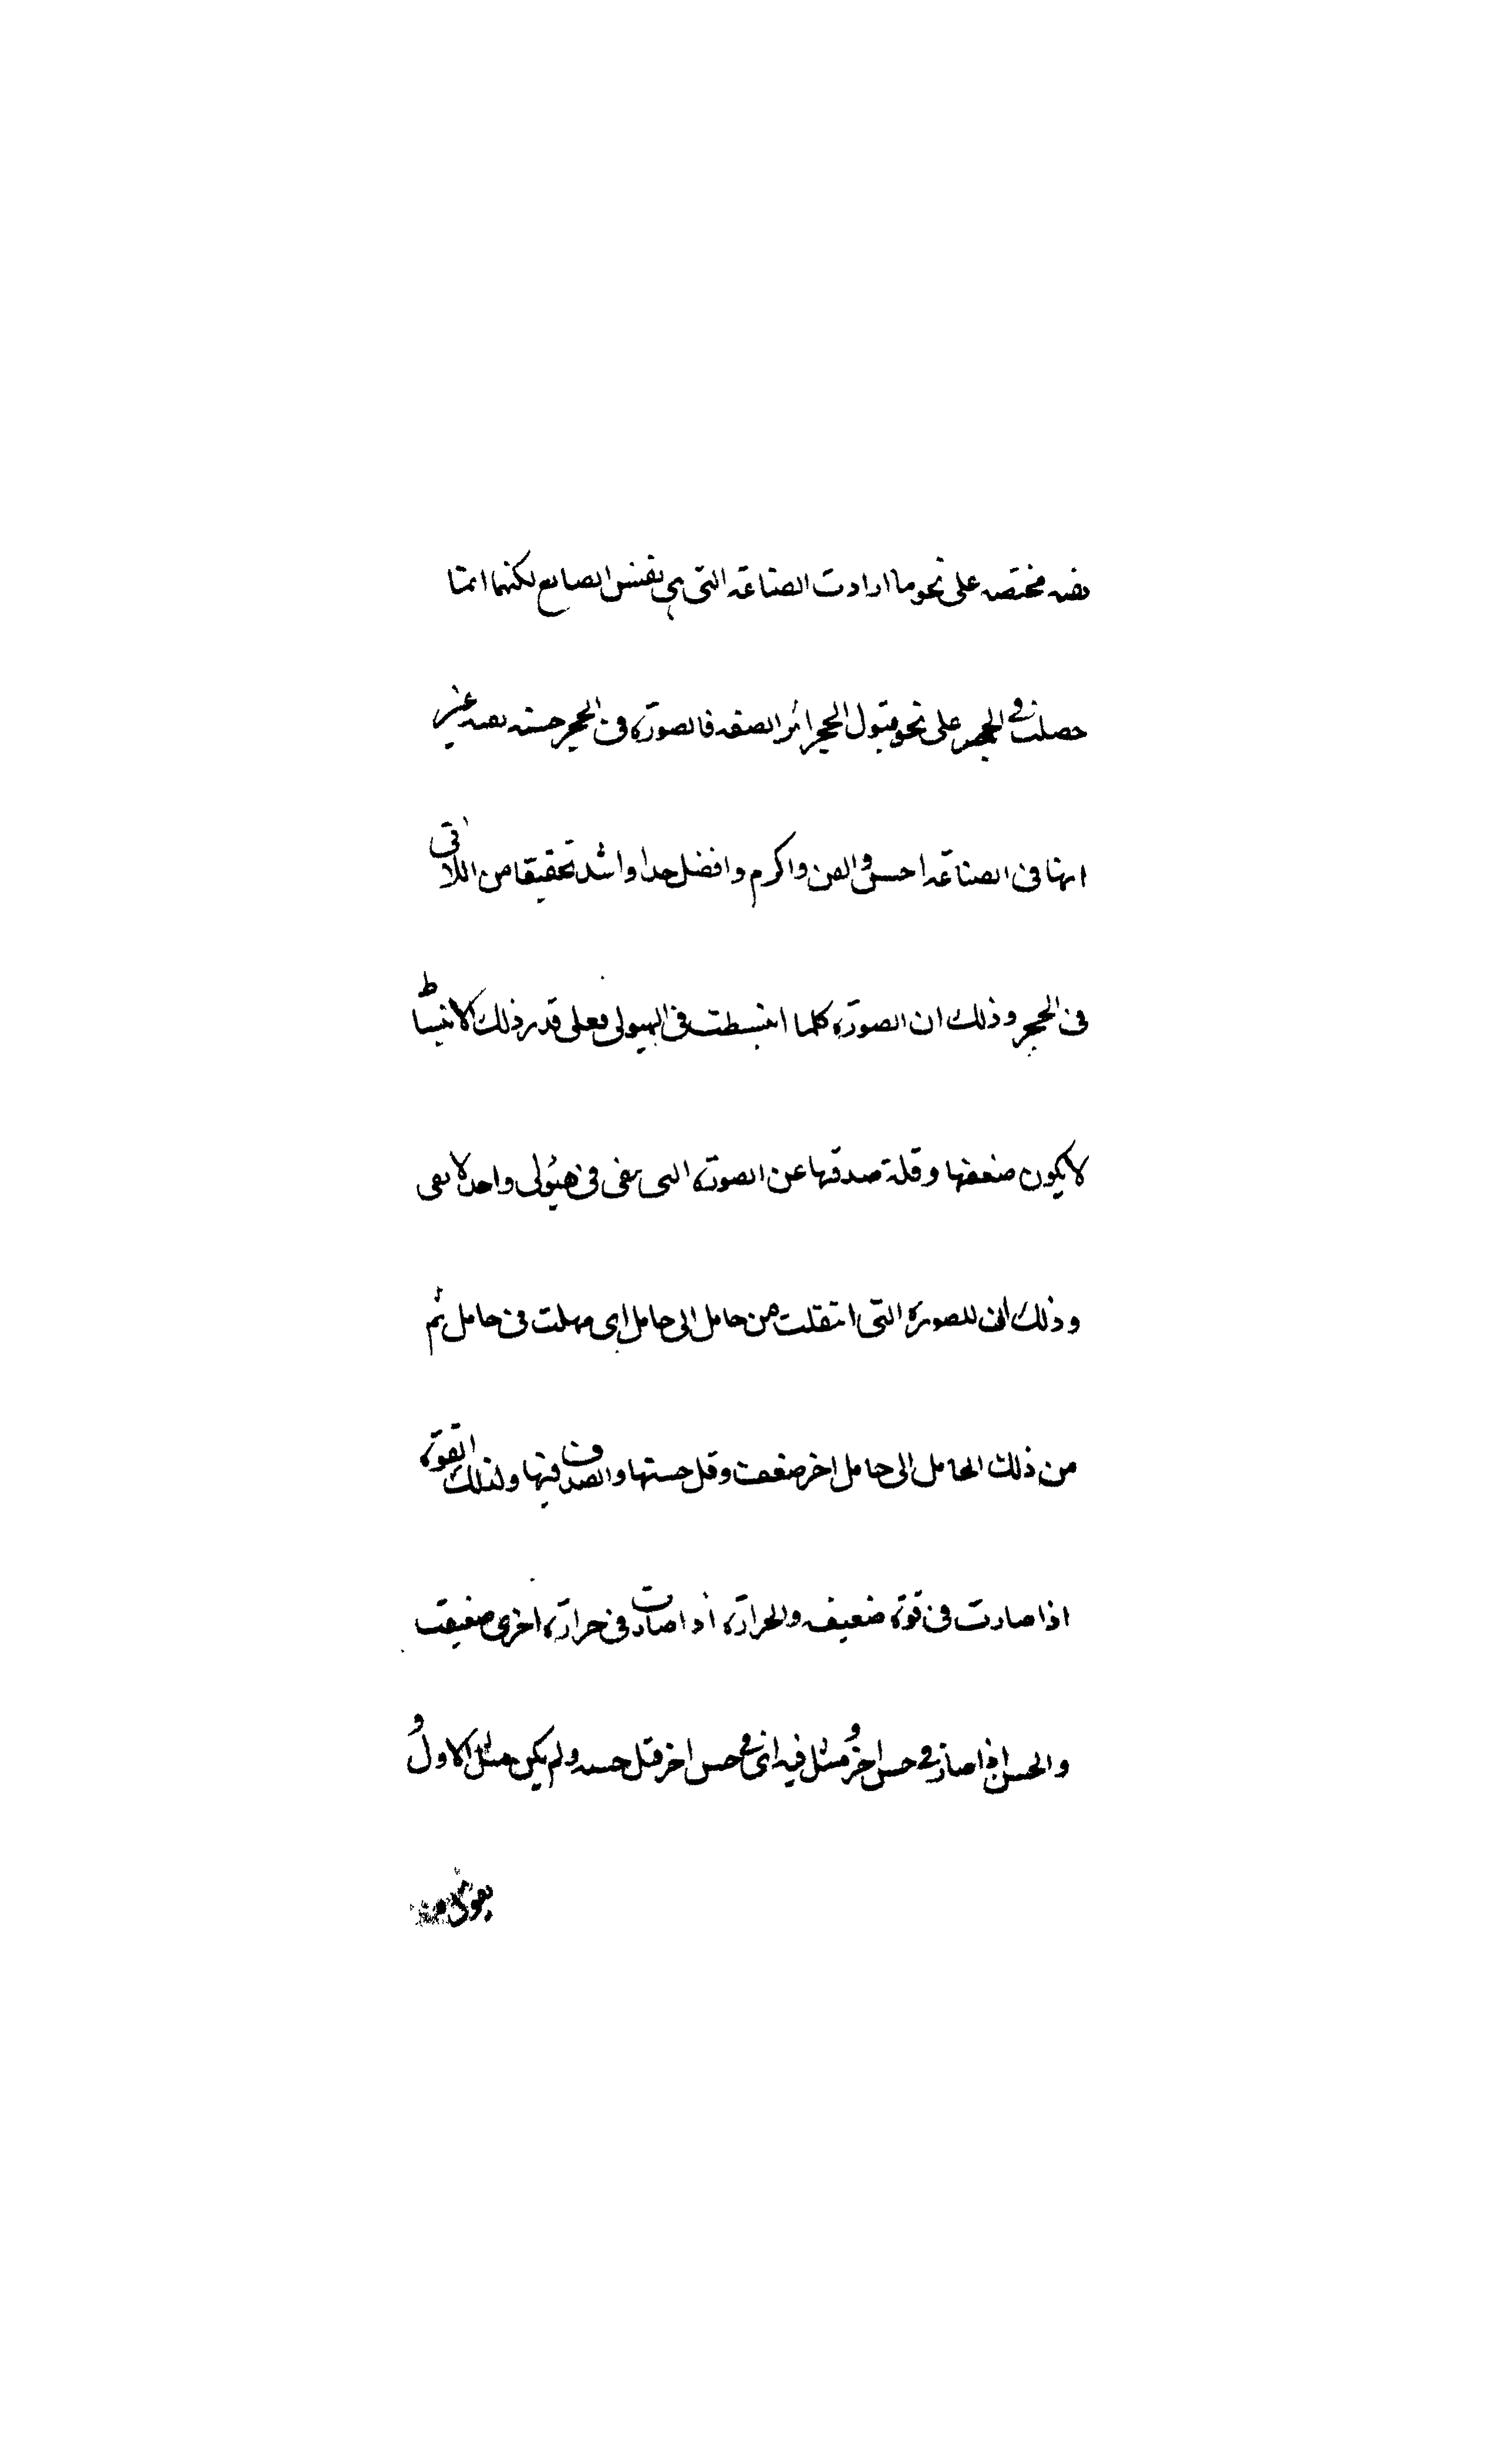 نقيه مختصه على نحو ما ارادت الصناعة التى هى نفس الصانع لكنها انما
حصلت فى الحجر على نحو قبول الحجر اثر الصنعه فالصورة فى الحجر حسنه نقيه غير
انها فى الصناعة احسن واتقن واكرم وافضل جدا واشد تحقيقا من اللاتى
فى الحجر وذلك ان الصورة كلما انبسطت فى الهيولى فعلى قدر ذلك الانبساط
لا يكون ضعفها وقلة صدقها عن الصورة التى تبقى فى هيولى واحد لا
وذلك ان للصورة التى انتقلت من حامل الى حامل اى مهلت فى حامل ثم
من ذلك الحامل الى حامل اخر ضعفت وقل حسنها والصدق فيها ولذلك القوة
اذا صارت فى قوة ضعيفه والحرارة اذا صارت فى حرارة اخرى ضعيفت
والحسن اذا صار فى حسن اخر ومثل فيه اى فى حسن اخر قل حسنه ولم يكن مثل الاول و
بقول